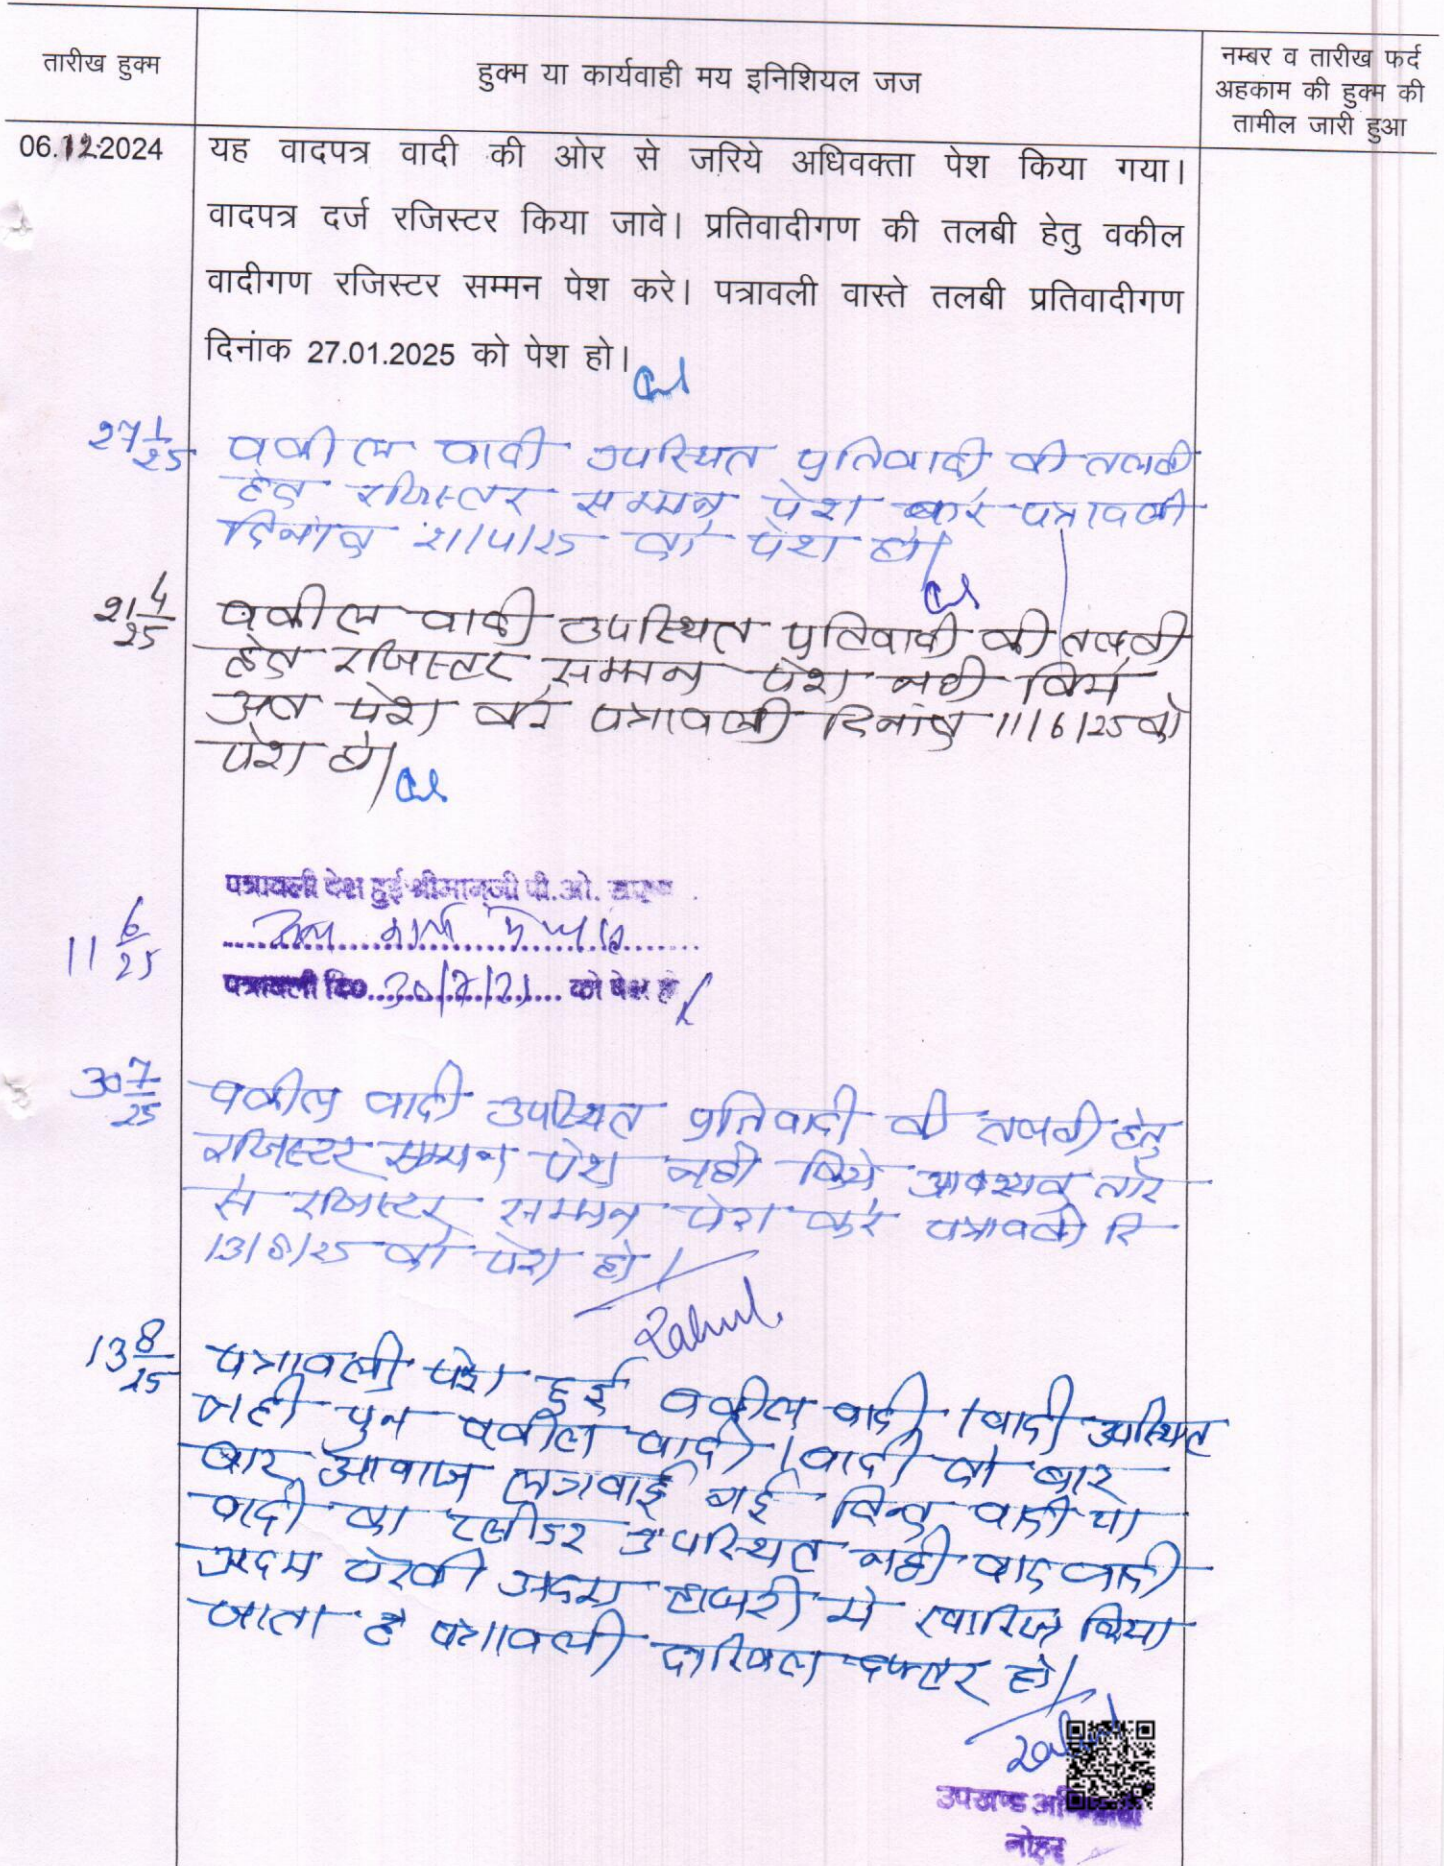 तारीख हुक्म
हुक्म या कार्यवाही मय इनिशियल जज
नम्बर व तारीख फर्द
अहकाम की हुक्म की
तामील जारी हुआ
06.12.2024
यह वादपत्र वादी की ओर से जरिये अधिवक्ता पेश किया गया।
वादपत्र दर्ज रजिस्टर किया जावे। प्रतिवादीगण की तलबी हेतु वकील
वादीगण रजिस्टर सम्मन पेश करे। पत्रावली वास्ते तलबी प्रतिवादीगण
दिनांक 27.01.2025 को पेश हो।
27 1/25
वकील वादी उपस्थित प्रतिवादी की तलबी
हेतु रजिस्टर सम्मन पेश करे पत्रावली
दिनांक 21/4/25 को पेश हो।
21 4/25
वकील वादी उपस्थित प्रतिवादी की तलबी
हेतु रजिस्टर सम्मन पेश नही किये
अत पेश करे पत्रावली दिनांक 11/6/25 को
पेश हो।
11 6/25
पत्रावली पेश हुई श्रीमानजी पी.ओ.
पत्रावली दि० 30/7/25 को पेश हो
30 7/25
वकील वादी उपस्थित प्रतिवादी की तलबी हेतु
रजिस्टर सम्मन पेश नही किये आवश्यक तौर
से रजिस्टर सम्मन पेश करे पत्रावली दि
13/8/25 को पेश हो।
Rahul
13 8/25
पत्रावली पेश हुई वकील वादी / वादी उपस्थित
नही पुन वकील वादी / वादी को बार
बार आवाज लगवाई गई किन्तु वादी या
वादी का प्लीडर उपस्थित नही वाद वादी
अदम पेरवी अदम हाजरी मे खारिज किया
जाता है पत्रावली दाखिल दफ्तर हो।
उपखण्ड अधिकारी
नोहर